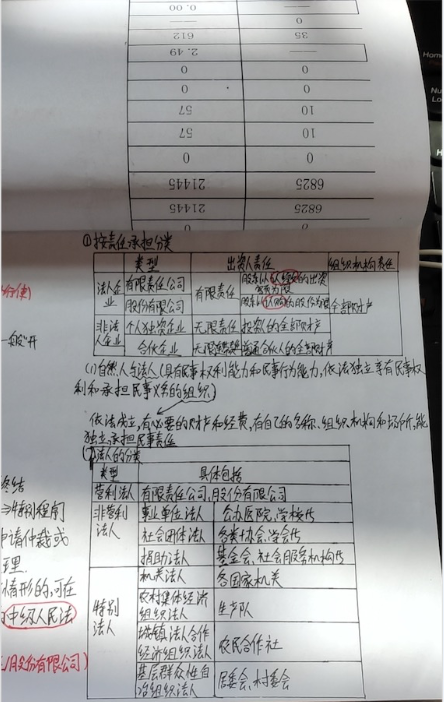 0.00
612 35
2.49
0 0
0 0
57 10
57 10
0 0
21445 6825
21445 6825
①按责任承担分类
类型 出资人责任 组织机构责任
法人企业 有限责任公司 有限责任 股东以认缴的出资额为限 全部财产
股份有限公司 股东以认购的股份为限
非法人企业 个人独资企业 无限责任 投资人的全部财产
合伙企业 无限 普通合伙人的全部财产
(1)自然人与法人(具有民事权利能力和民事行为能力,依法独立享有民事权
利和承担民事义务的组织.)
依法成立,有必要的财产和经费,有自己的名称、组织机构和场所,能
独立承担民事责任
法人的分类
类型 具体包括
营利法人 有限责任公司,股份有限公司
非营利法人 事业单位法人 公办医院,学校
社会团体法人 各类协会,学会
捐助法人 基金会,社会服务机构
特别法人 机关法人 各国家机关
农村集体经济组织法人 生产队
城镇 法合作经济组织法人 农民合作社
基层群众性自治组织法人 居委会,村委会
终结
特别程序
申请仲裁或
理
情形的,可在
中级人民法
股份有限公司)